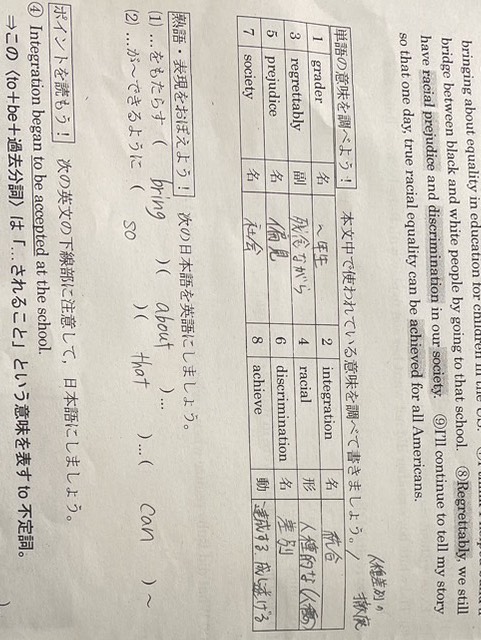 bringing about equality in education for children in the US.
bridge between black and white people by going to that school. ⑧Regrettably, we still
have racial prejudice and discrimination in our society. ⑨I'll continue to tell my story
so that one day, true racial equality can be achieved for all Americans.
人種差別の
撤廃
単語の意味を調べよう! 本文中で使われている意味を調べて書きましょう。
1 grader 名 〜年生 2 integration 名 統合
3 regrettably 副 残念ながら 4 racial 形 人種的な(人種の)
5 prejudice 名 偏見 6 discrimination 名 差別
7 society 名 社会 8 achieve 動 達成する, 成し遂げる
熟語・表現をおぼえよう! 次の日本語を英語にしましょう。
(1) …をもたらす ( bring )( about )…
(2) …が〜できるように ( so )( that )…( can )〜
ポイントを読もう! 次の英文の下線部に注意して,日本語にしましょう。
④ Integration began to be accepted at the school.
⇒この〈to+be+過去分詞〉は「…されること」という意味を表す to 不定詞。